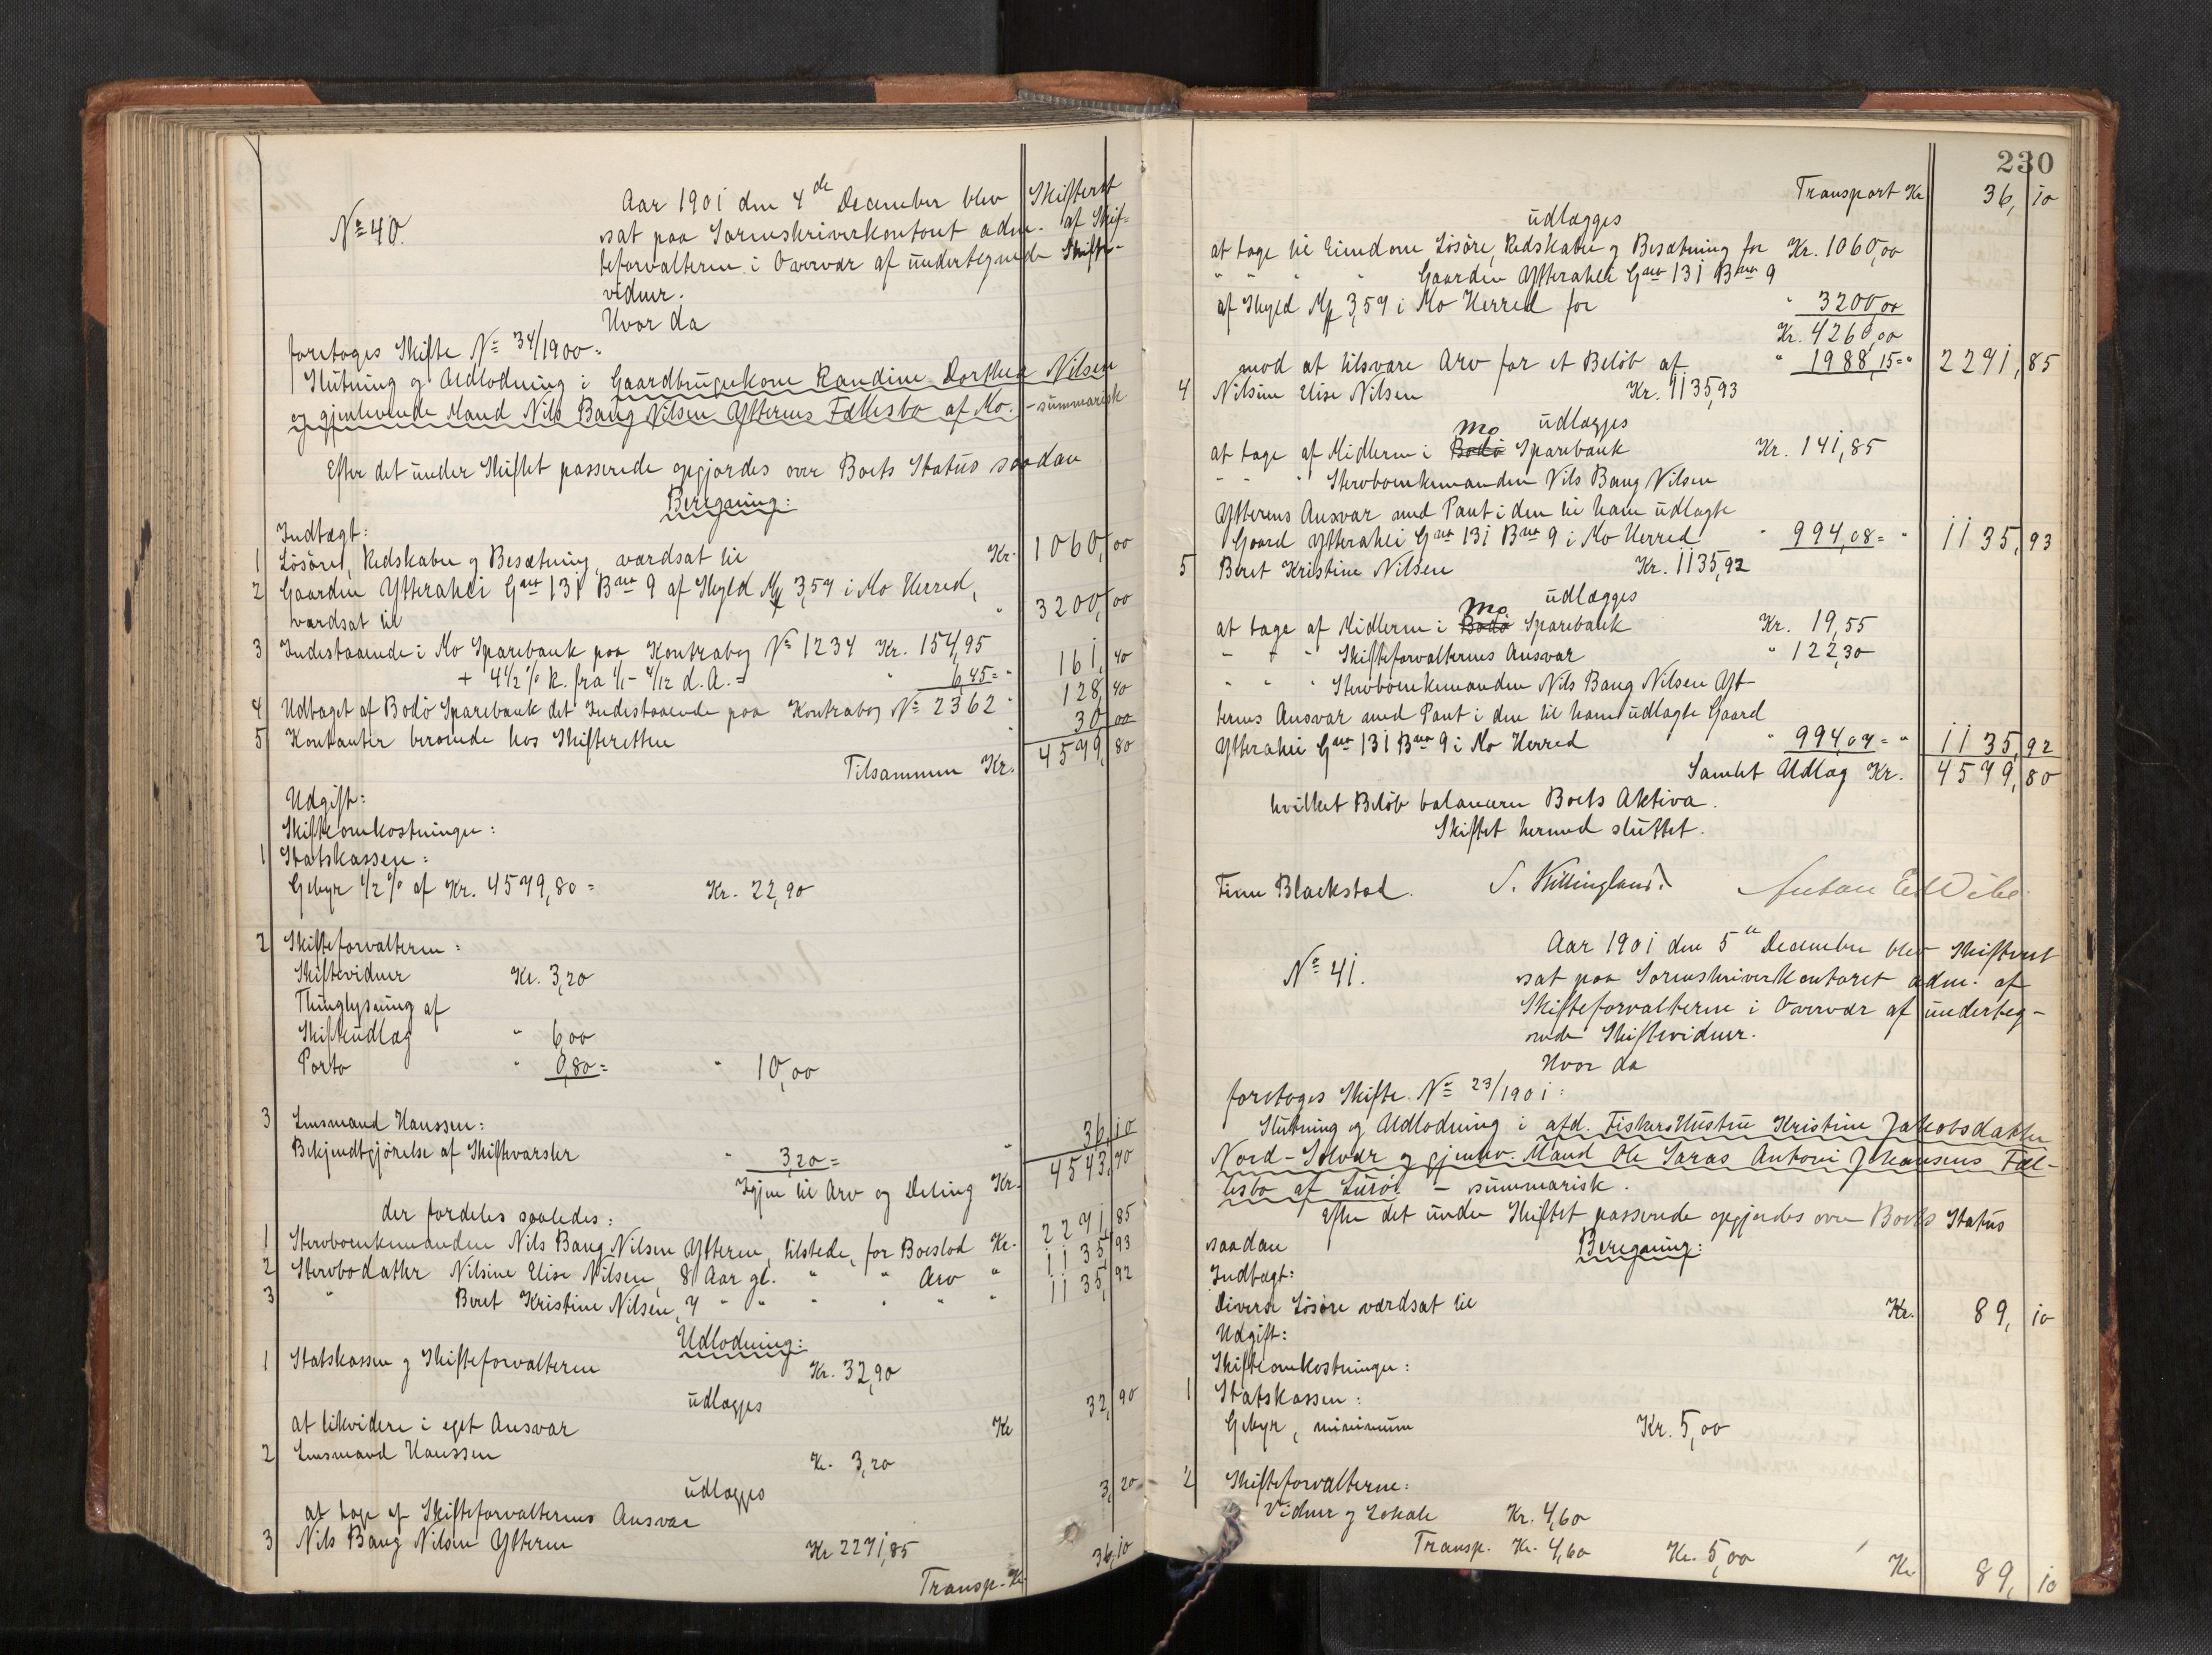 Aar 1901 den 4de December blev Skifteret
No 40. sat paa Sorenskriverkontoret adm. af Skif-
teforvalteren i Overvær af undertegnede Skifte-
vidner.
Hvor da
foretoges Skifte No 34/1900:
Slutning og Udlodning i Gaardbrugerkone Randine Dorthea Nilsen
og gjenlevende Mand Nils Bang Nilsen Ytterens Fællesbo af Mo. - summarisk
Efter det under Skiftet passerede opgjordes over Boets Status saadan
Beregning:
Indtægt:
1 Løsøret, Redskaber og Besætning, værdsat til Kr. 1060,00
2 Gaarden Ytterahei Gno 131 Bno 9 af Skyld Mk 3,57 i Mo Herred,
værdsat til " 3200,00
3 Indestaaende i Mo Sparebank paa Kontrabog No 1234 Kr. 154,95
+ 4 1/2 % R. fra 1/1 - 4/12 d. A. = " 6,45 = " 161,40
4 Udtaget af Bodø Sparebank det Indestaaende paa Kontrabog No 2362 " 128,40
5 Kontanter beroende hos Skifteretten " 30,00
Tilsammen Kr. 4579,80
Udgift:
Skifteomkostninger:
1 Statskassen:
Gebyr 1/2 % af Kr. 4579,80 = Kr. 22,90
2 Skifteforvalteren:
Skiftevidner Kr. 3,20
Thinglysning af
Skifteudlæg " 6,00
Porto " 0,80 = " 10,00
3 Lensmand Hanssen:
Bekjendtgjørelse af Skiftevarsler " 3,20 = " 36,10
Igjen til Arv og Deling Kr. 4543,70
der fordeles saaledes:
1 Stervboenkemanden Nils Bang Nilsen Ytteren, tilstede, for Boeslod Kr. 2271,85
2 Stervbodatter Nilsine Elise Nilsen, 8 Aar gl. " " Arv " 1135,93
3 " Beret Kristine Nilsen, 7 " " " " " " 1135,92
Udlodning:
1 Statskassen og Skifteforvalteren Kr. 32,90
udlægges
at likvidere i eget Ansvar Kr 32,90
2 Lensmand Hanssen Kr. 3,20
udlægges
at tage af Skifteforvalterens Ansvar 3,20
3 Nils Bang Nilsen Ytteren Kr 2271,85
Transp. Kr. 36,10
230
Transport Kr 36,10
udlægges
at tage til Eiendom Løsøre, Redskaber og Besætning for Kr. 1060,00
" " " " Gaarden Ytterahei Gno 131 Bno 9
af Skyld Mk 3,57 i Mo Herred for " 3200,00
Kr. 4260,00
mod at tilsvare Arv for et Beløb af " 1988,15 = " 2271,85
4 Nilsine Elise Nilsen Kr. 1135,93
udlægges
at tage af Midlerne i Bodø Mo Sparebank Kr. 141,85
" " " Stervboenkemanden Nils Bang Nilsen
Ytterens Ansvar med Pant i den til ham udlagte
Gaard Ytterahei Gno 131 Bno 9 i Mo Herred " 994,08 = " 1135,93
5 Beret Kristine Nilsen Kr. 1135,92
udlægges
at tage af Midlerne i Bodø Mo Sparebank Kr. 19,55
" " " Skifteforvalterens Ansvar " 122,30
" " " Stervboenkemanden Nils Bang Nilsen Yt-
terens Ansvar med Pant i den til ham udlagte Gaard
Ytterahei Gno 131 Bno 9 i Mo Herred " 994,07 = " 1135,92
Samlet Udlæg Kr. 4579,80
hvilket Beløb balancerer Boets Aktiva.
Skiftet hermed sluttet.
Finn Blackstad. S. Killingland. Anton E. Wibe
Aar 1901 den 5te December blev Skifteret
No 41. sat paa Sorenskriverkontoret adm. af
Skifteforvalteren i Overvær af underteg-
nede Skiftevidner.
Hvor da
foretoges Skifte No 23/1901:
Slutning og Udlodning i afd. Fiskershustru Kristine Jakobsdatter
Nord-Solvær og gjenlev. Mand Ole Saras Antoni Johansens Fæl-
lesbo af Lurø. - summarisk.
Efter det under Skiftet passerede opgjordes over Boets Status
saadan Beregning:
Indtægt:
Diverse Løsøre værdsat til Kr. 89,10
Udgift:
Skifteomkostninger:
1 Statskassen:
Gebyr, minimum Kr. 5,00
2 Skifteforvalteren:
Vidner og Lokale Kr. 4,60
Transp. Kr. 4,60 Kr. 5,00 Kr. 89,10